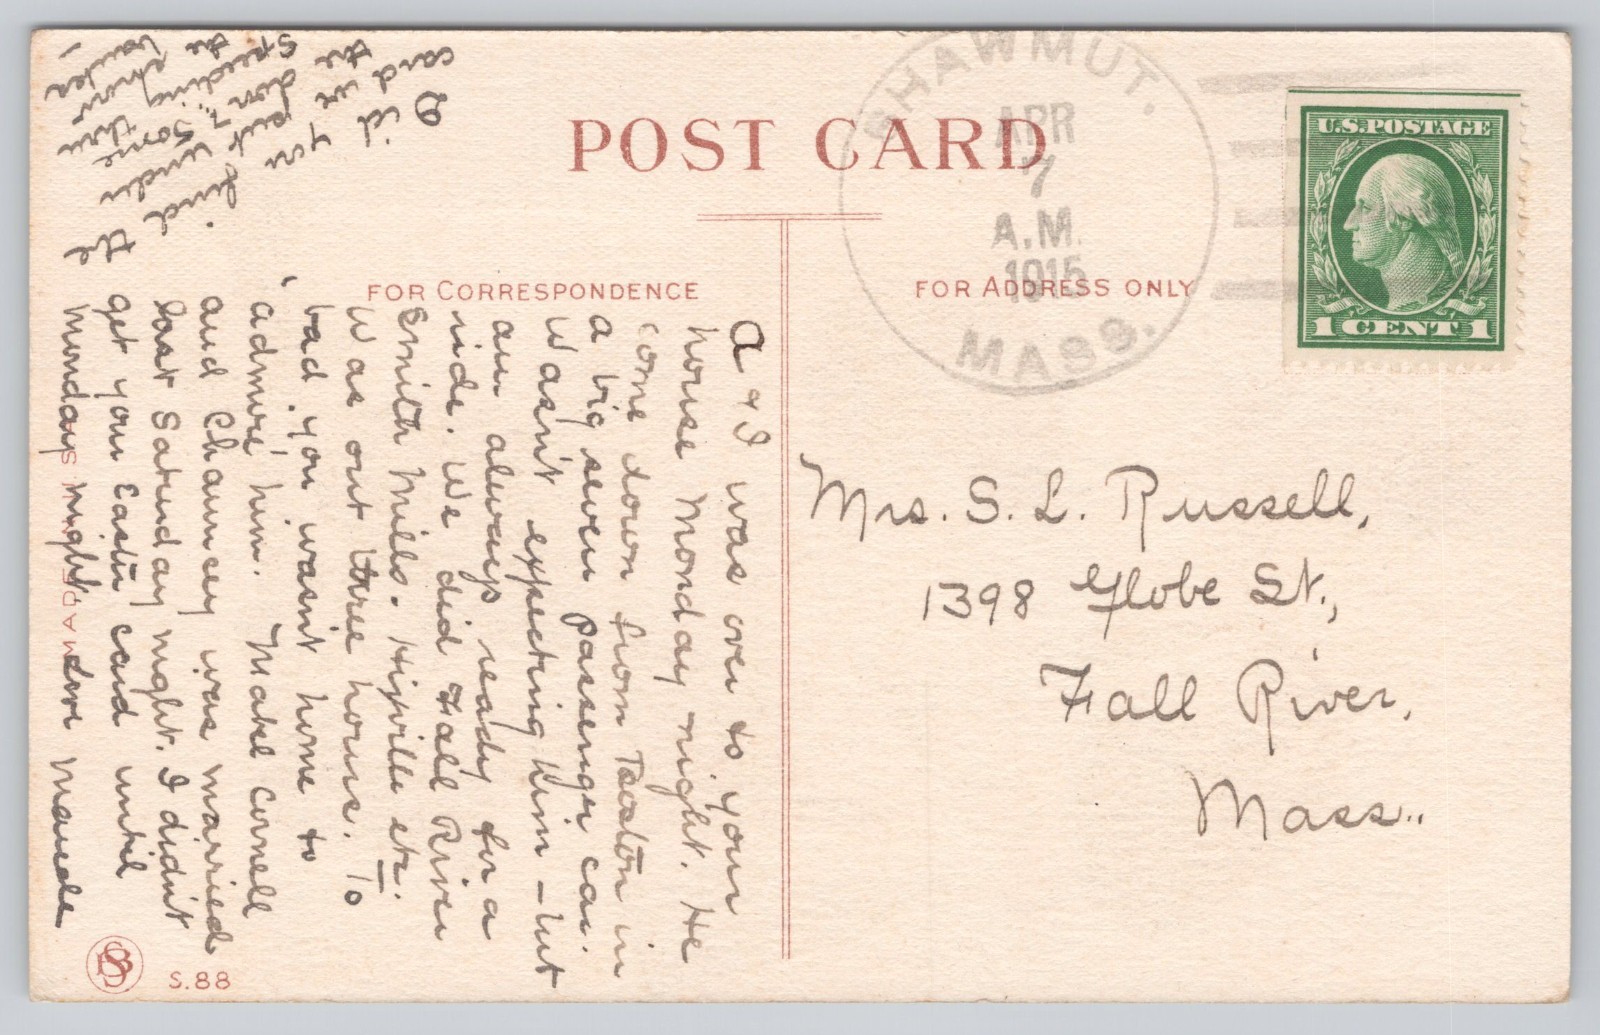 POST CARD
FOR CORRESPONDENCE
FOR ADDRESS ONLY
SHAWMUT.
APR
7
A.M.
1915
MASS.
U.S. POSTAGE
1 CENT 1
Mrs. S. L. Russell,
1398 Globe St.,
Fall River,
Mass..
A & I was over to your
house Monday night. He
come down from Taunton in
a big seven passenger car.
Wasn't expecting him - but
am always ready for a
ride. We did Fall River
Smith Mills. Hixville etc.
Was out three hours. To
bad you wasn't home to
"admire" him. Make Cornell
and Chauncey was married
last Saturday night. I didn't
get your Easter card until
Monday night Love Maude
Did you find the
card we put under
the door? Some
speeding thru
the
S.88